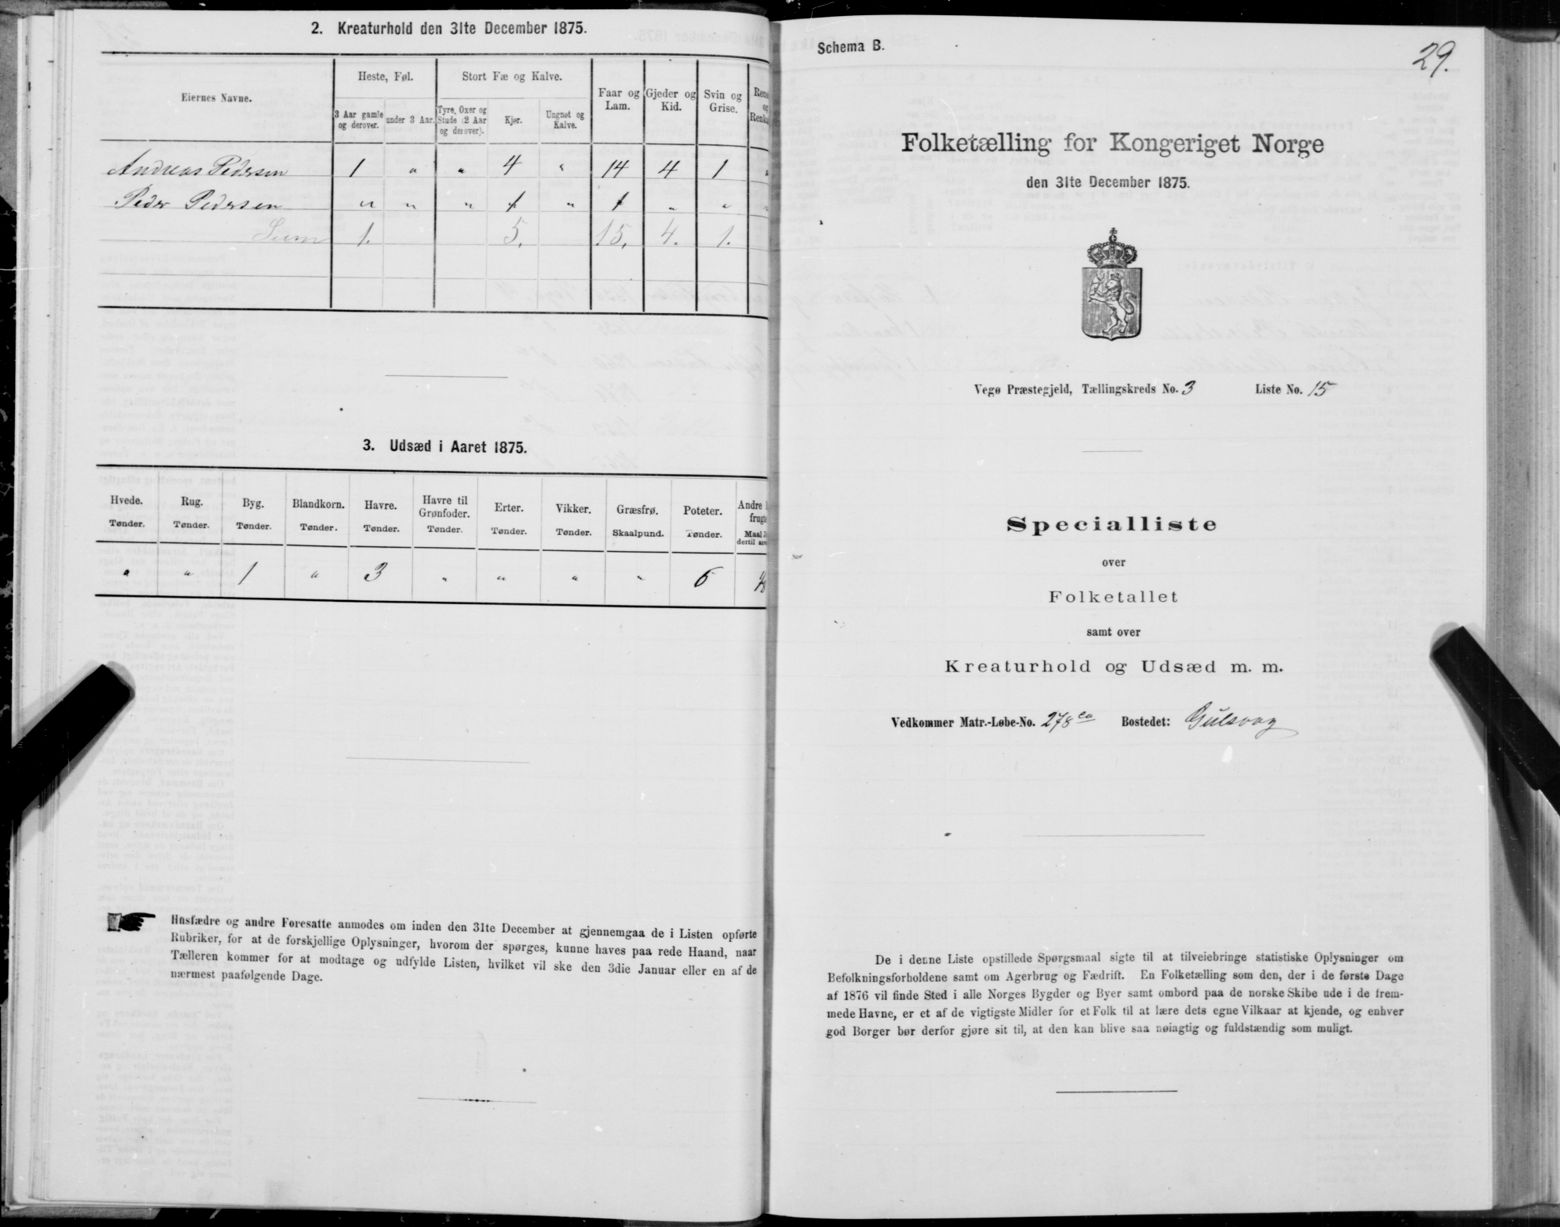 2. Kreaturhold den 31te December 1875.
Eiernes Navne.
Heste, Føl.
Stort Fæ og Kalve.
Faar og Lam.
Gjeder og Kid.
Svin og Grise.
3 Aar gamle og derover.
under 3 Aar.
Tyre, Oxer og Stude (2 Aar og derover).
Kjør.
Ungnøt og Kalve.
Andreas Pedersen 1 " " 4 " 14 4 1 "
Peder Pedersen " " " 1 " 1 " " "
Sum 1. 5. 15. 4. 1.
3. Udsæd i Aaret 1875.
Hvede. Rug. Byg. Blandkorn. Havre. Havre til Grønfoder. Erter. Vikker. Græsfrø. Poteter. Andre
Tønder. Tønder. Tønder. Tønder. Tønder. Tønder. Tønder. Tønder. Skaalpund. Tønder.
" " 1 " 3 " " " " 6
Husfædre og andre Foresatte anmodes om inden den 31te December at gjennemgaa de i Listen opførte
Rubriker, for at de forskjellige Oplysninger, hvorom der spørges, kunne haves paa rede Haand, naar
Tælleren kommer for at modtage og udfylde Listen, hvilket vil ske den 3die Januar eller en af de
nærmest paafølgende Dage.
Schema B.
29.
Folketælling for Kongeriget Norge
den 31te December 1875.
Vegø Præstegjeld, Tællingskreds No. 3 Liste No. 15
Specialliste
over
Folketallet
samt over
Kreaturhold og Udsæd m. m.
Vedkommer Matr.-Løbe-No. 278 Bostedet: Gulsvag
De i denne Liste opstillede Spørgsmaal sigte til at tilveiebringe statistiske Oplysninger om
Befolkningsforholdene samt om Agerbrug og Fædrift. En Folketælling som den, der i de første Dage
af 1876 vil finde Sted i alle Norges Bygder og Byer samt ombord paa de norske Skibe ude i de frem-
mede Havne, er et af de vigtigste Midler for et Folk til at lære dets egne Vilkaar at kjende, og enhver
god Borger bør derfor gjøre sit til, at den kan blive saa nøiagtig og fuldstændig som muligt.